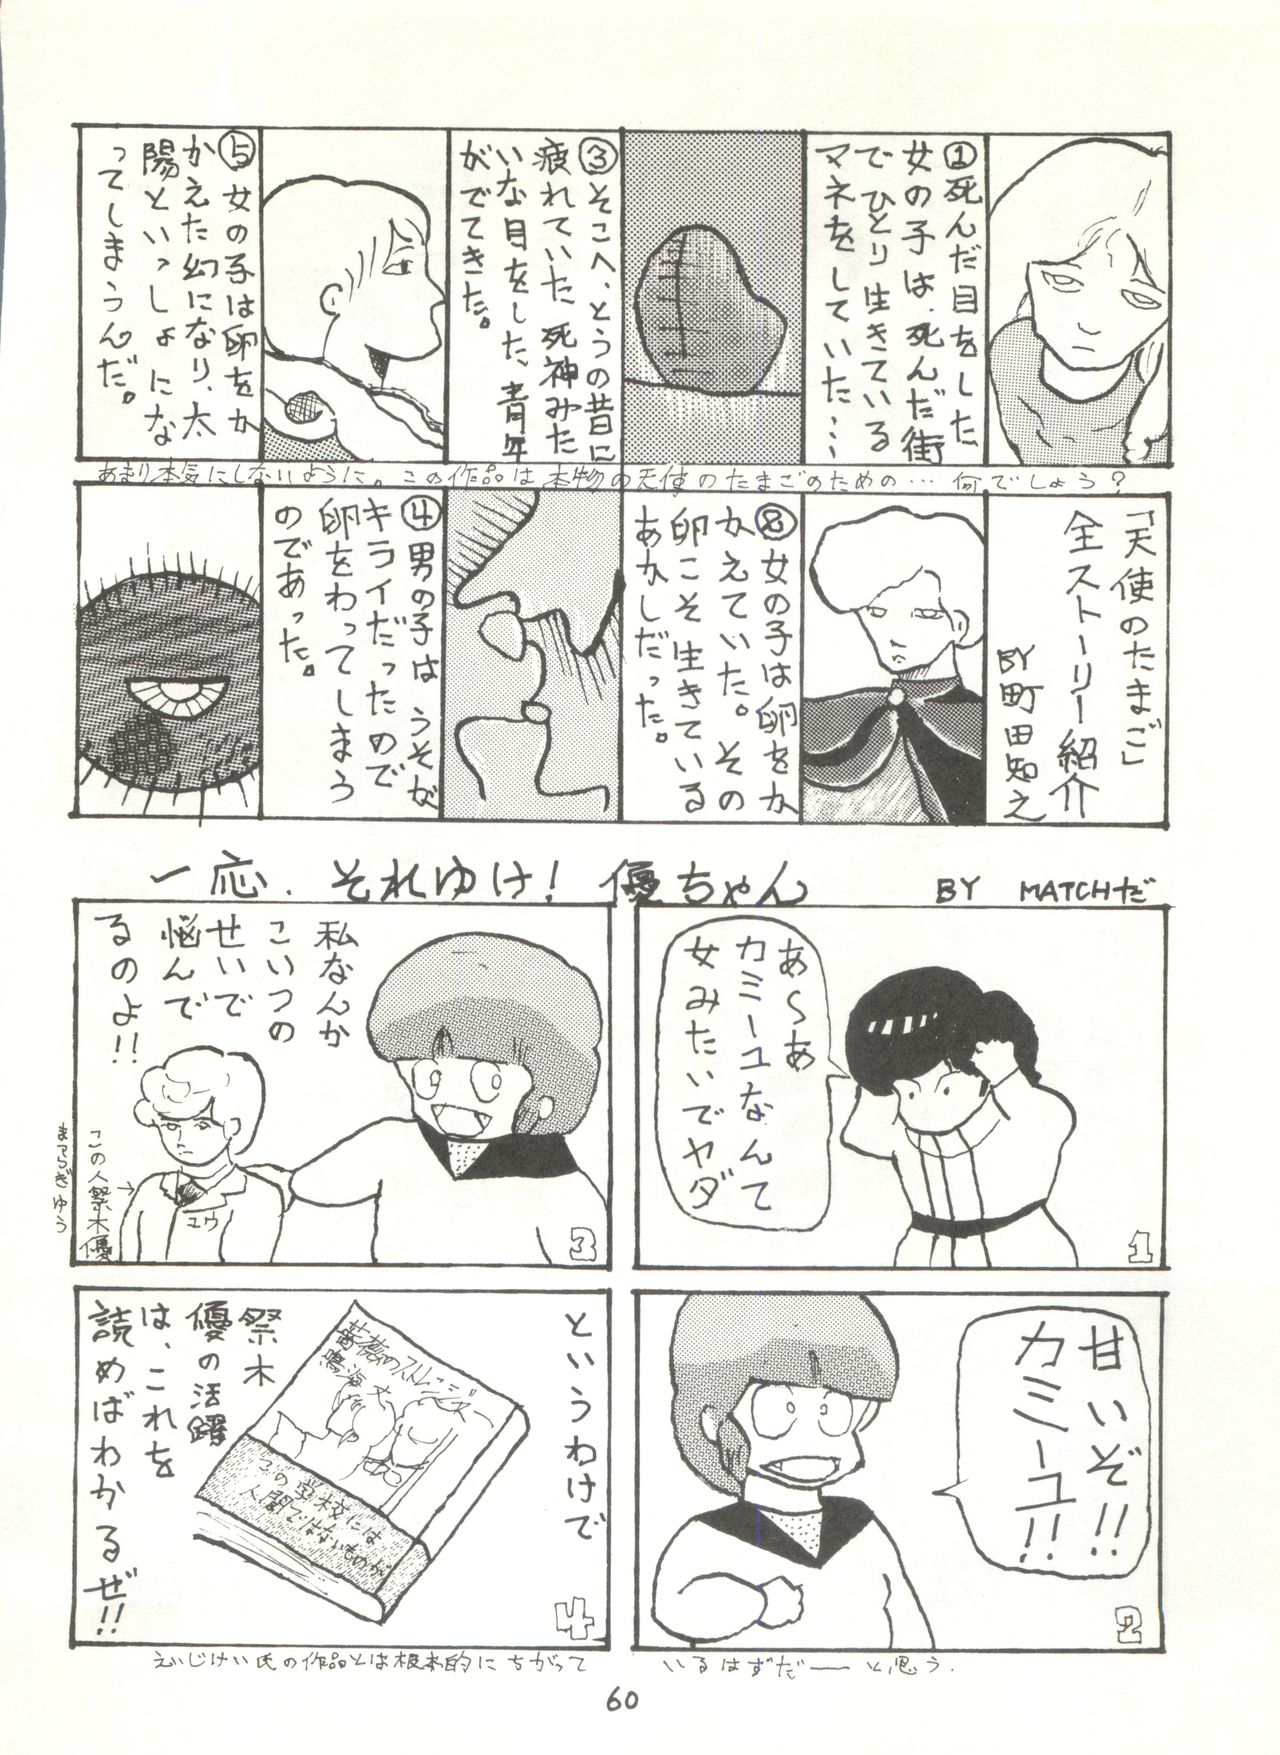 ①死んだ目をした
女の子は、死んだ街
でひとり生きている
マネをしていた…
③そこへ、とうの昔に
疲れていた死神みた
いな目をした、青年
がでてきた。
⑤女の子は卵をか
かえた幻になり、太
陽といっしょにな
ってしまうんだ。
あまり本気にしないように。この作品は本物の天使のたまごのための…何でしょう?
「天使のたまご」
全ストーリー紹介
BY町田知之
②女の子は卵をか
かえていた。その
卵こそ生きている
あかしだった。
④男の子はうそが
キライだったので
卵をわってしまう
のであった。
一応.それゆけ!優ちゃん
BY MATCHだ
あ〜あ
カミーユなんて
女みたいでヤダ
1
甘いぞ!!
カミーユ!!
2
私なんか
こいつの
せいで
悩んで
るのよ!!
この人祭木優
まつらぎゆう
ユウ
3
というわけで
薔薇のストレンジャー
鳴海丈
この学校には
人間ではないものが
祭木
優の活躍
は、これを
読めばわかるぜ!!
4
えいじけい氏の作品とは根本的にちがって
いるはずだ――と思う.
60